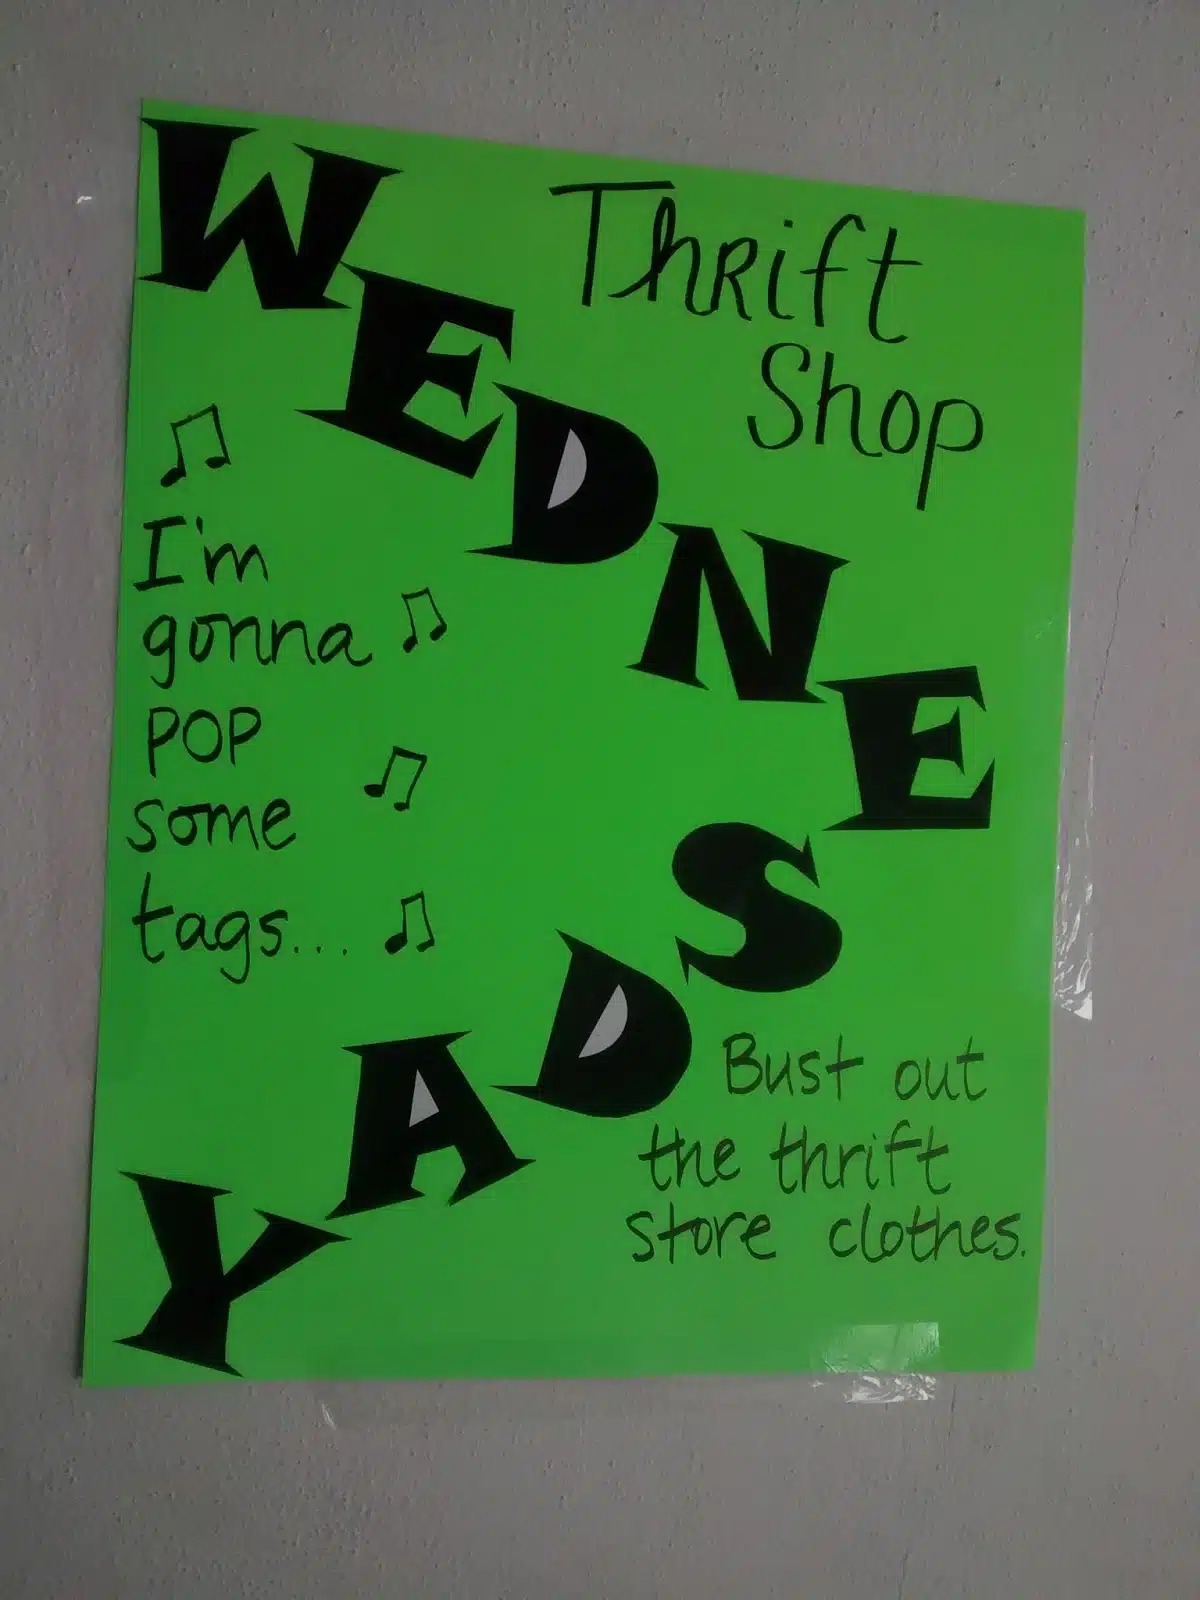 WEDNESDAY
Thrift
Shop
I'm
gonna
POP
some
tags...
Bust out
the thrift
store clothes.